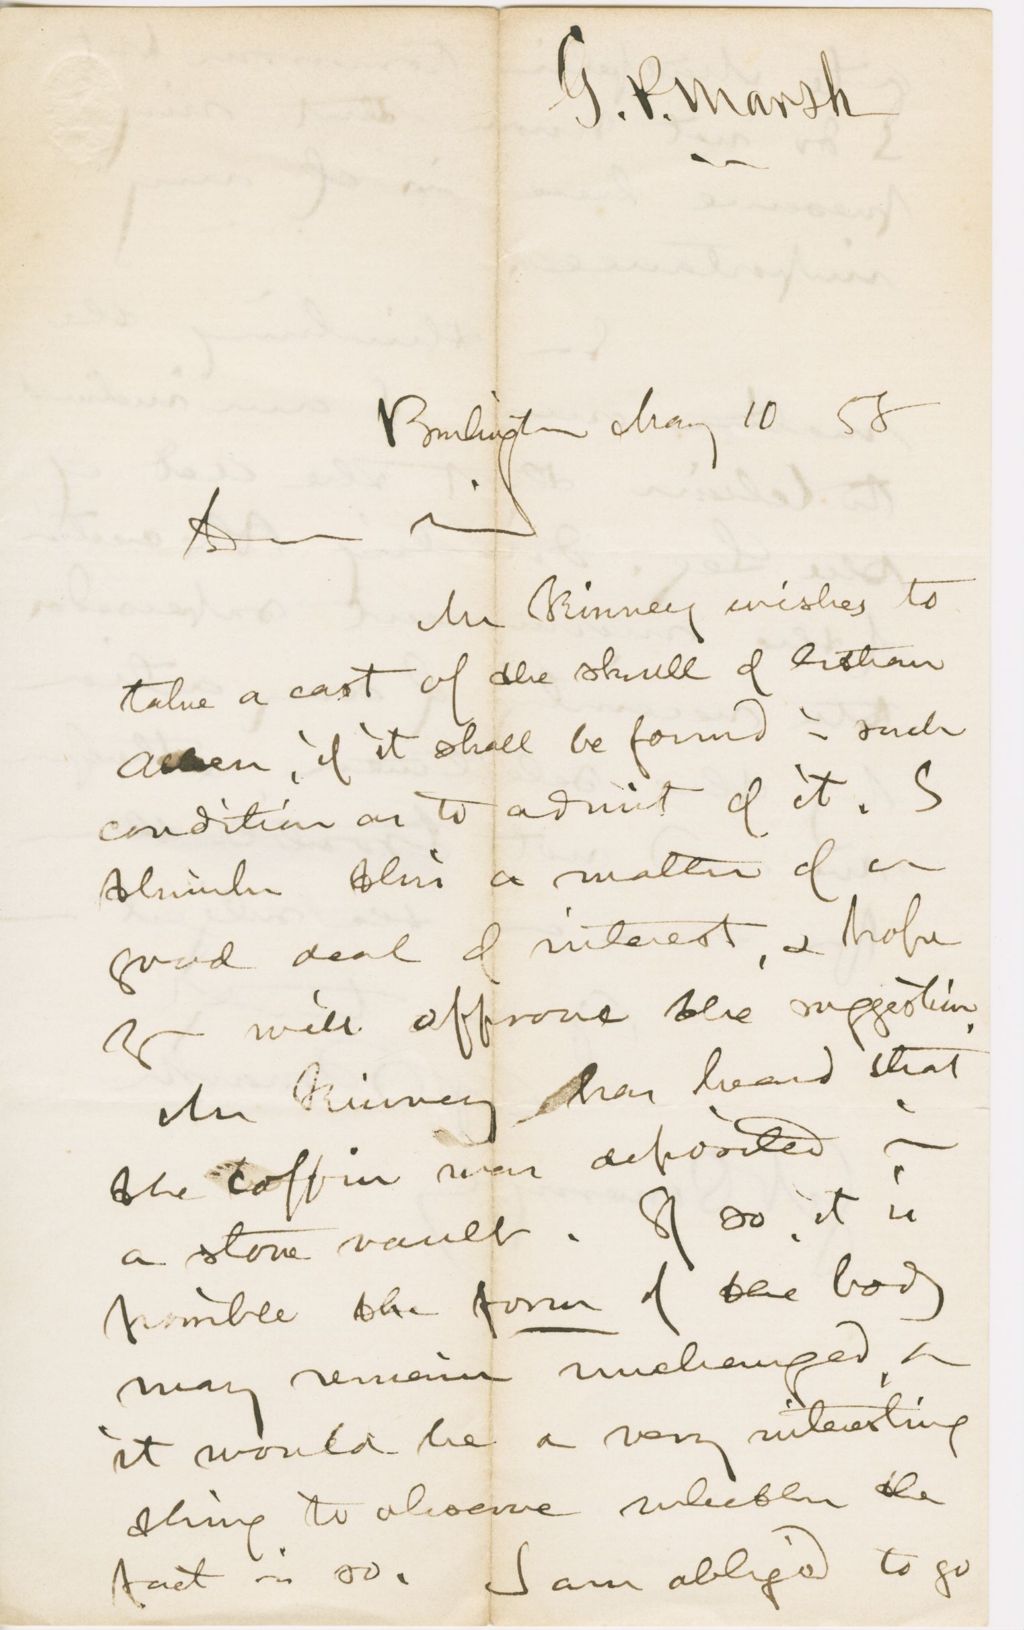 G. P. Marsh
Burlington May 10 58
Dear Sir
Mr Kinney wishes to
take a cast of the skull of Ethan
Allen, if it shall be found in such
condition as to admit of it. I
think this a matter of a
good deal of interest, & hope
you will approve the suggestion.
Mr Kinney has heard that
the coffin was deposited in
a stone vault. If so, it is
possible the form of the body
may remain unchanged, &
it would be a very interesting
thing to observe whether the
fact is so. I am oblig'd to go